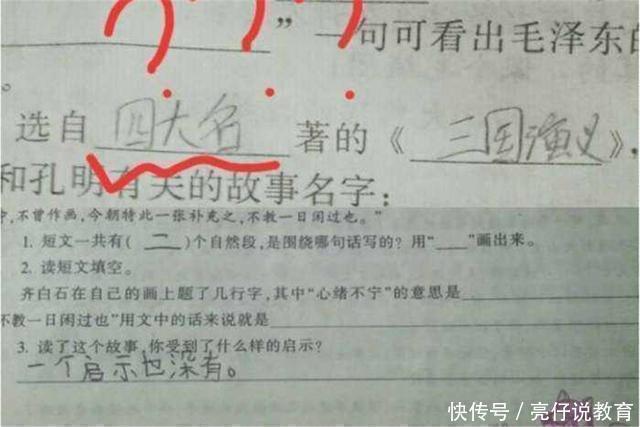 ”一句可看出毛泽东的
。
选自 四大名 著的《 三国演义 》,
和孔明有关的故事名字:
中,不曾作画,今朝特此一张补充之,不教一日闲过也。”
1. 短文一共有( 二 )个自然段,是围绕哪句话写的?用“____”画出来。
2. 读短文填空。
齐白石在自己的画上题了几行字,其中“心绪不宁”的意思是
不教一日闲过也”用文中的话来说就是
3. 读了这个故事,你受到了什么样的启示?
一个启示也没有。
快传号/亮仔说教育